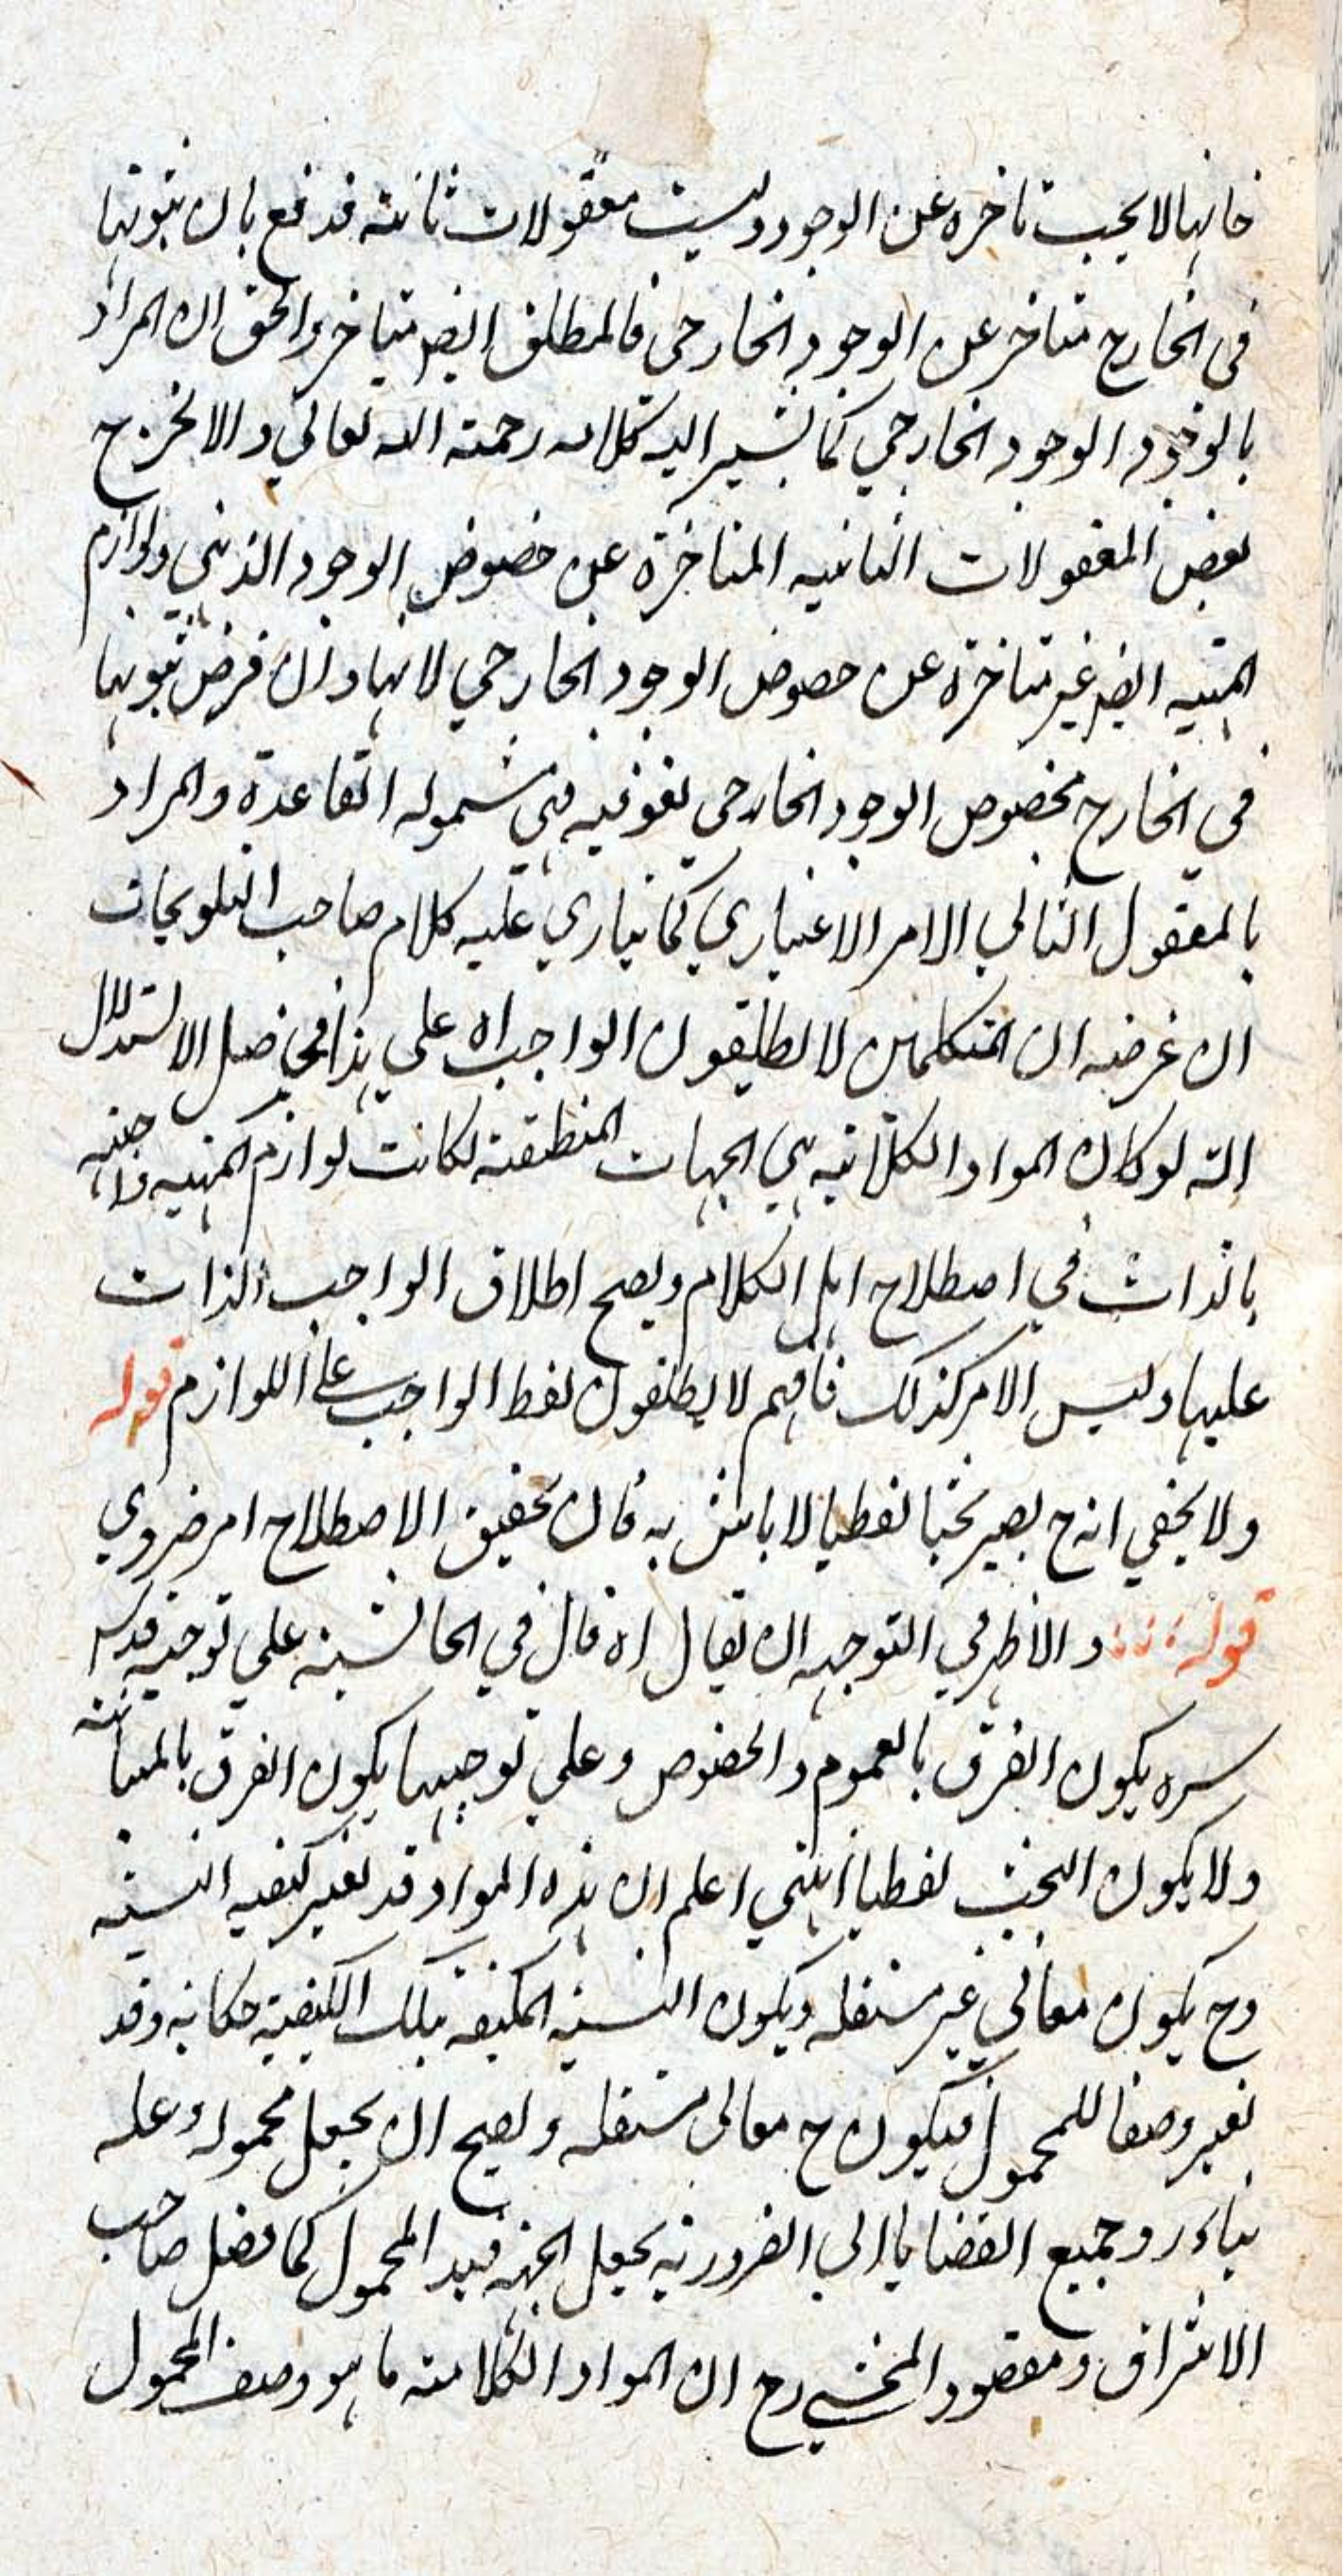 فانها لا يجب تاخره عن الوجود وليست معقولات ثانية فدفع بان ثبوتها
في الخارج متاخر عن الوجود الخارجي فالمطلق ايضا متاخر والحق ان المراد
بالوجود الوجود الخارجي كما يشير اليه كلامه رحمة الله تعالي والا لخرج
بعض المعقولات الثانيه المتاخرة عن خصوص الوجود الذهني ولوازم
المهيه ايضا غير متاخرة عن خصوص الوجود الخارجي لانها وان فرض ثبوتها
في الخارج بخصوص الوجود الخارجي لغو فيه في شموله القاعدة والمراد
بالمعقول الثاني الامر الاعتباري كما ينادي عليه كلام صاحب التلويحات
ان غرضه ان المتكلمين لا يطلقون الواجب اه علي هذا في اصل الاستدلال
انه لو كان المواد الكلاميه هي الجهات المنطقية لكانت لوازم المهيه واجبه
بالذات في اصطلاح اهل الكلام ويصح اطلاق الواجب الذات
عليها وليس الامر كذلك فافهم لا يطلقون لفظ الواجب علي اللوازم قوله
ولا يخفي انه ح يصير بحثا لفظيا لا باس به فان تحقيق الاصطلاح امر ضروري
قوله والاظهر في التوجيه ان يقال اه قال في الحاشية علي توجيه قدس
سره يكون الفرق بالعموم والخصوص وعلي توجيهها يكون الفرق بالمباينة
ولا يكون البحث لفظيا انتهي اعلم ان هذه المواد قد تعتبر كيفيه النسبة
وح يكون معاني غير مستقله ويكون النسبة المكيفه بتلك الكيفية حكايه وقد
تعتبر وصفا للمحمول فيكون ح معاني مستقله ويصح ان يجعل محموله وعليه
بناء رد وجميع القضايا الي الضرورية بجعل الجهة قيد المحمول كما فعل صاحب
الاشراق ومقصود المحشي رح ان المواد الكلامية ما هو وصف المحمول